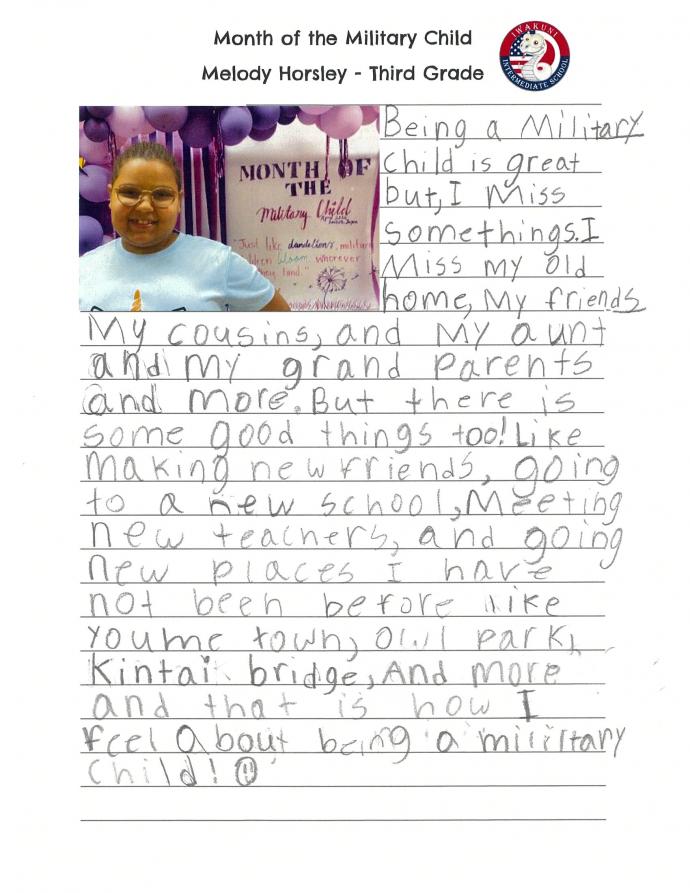 Month of the Military Child
Melody Horsley - Third Grade
IWAKUNI
INTERMEDIATE SCHOOL
MONTH OF
THE
Military Child
"Just like dandelions, militar
ldren bloom wherever
they land."
Being a Military
child is great
but, I Miss
somethings. I
Miss my old
home, My friends
My cousins, and My aunt
and my grand parents
and more. But there is
some good things too! Like
Making new friends, going
to a new school, Meeting
new teachers, and going
new places I have
not been before like
youme town, owl park,
Kintai bridge, And more
and that is how I
feel About being a mililtary
child!